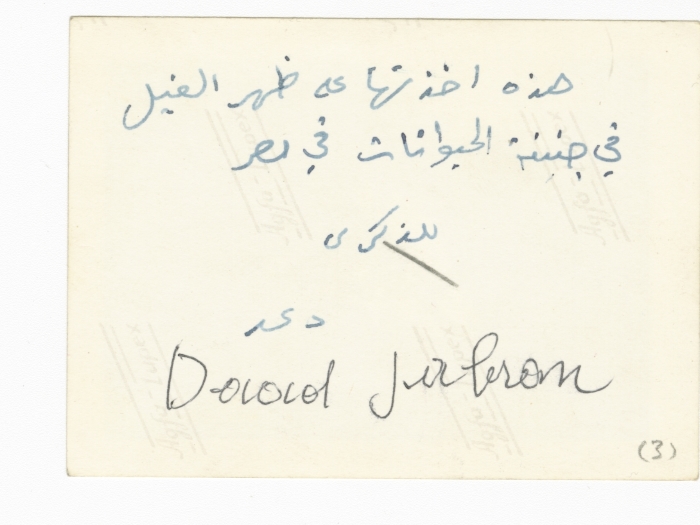 هذه اخذتها على ظهر الفيل
في جنينة الحيوانات في مصر
للذكرى
دعد
Daad Jubran
(3)